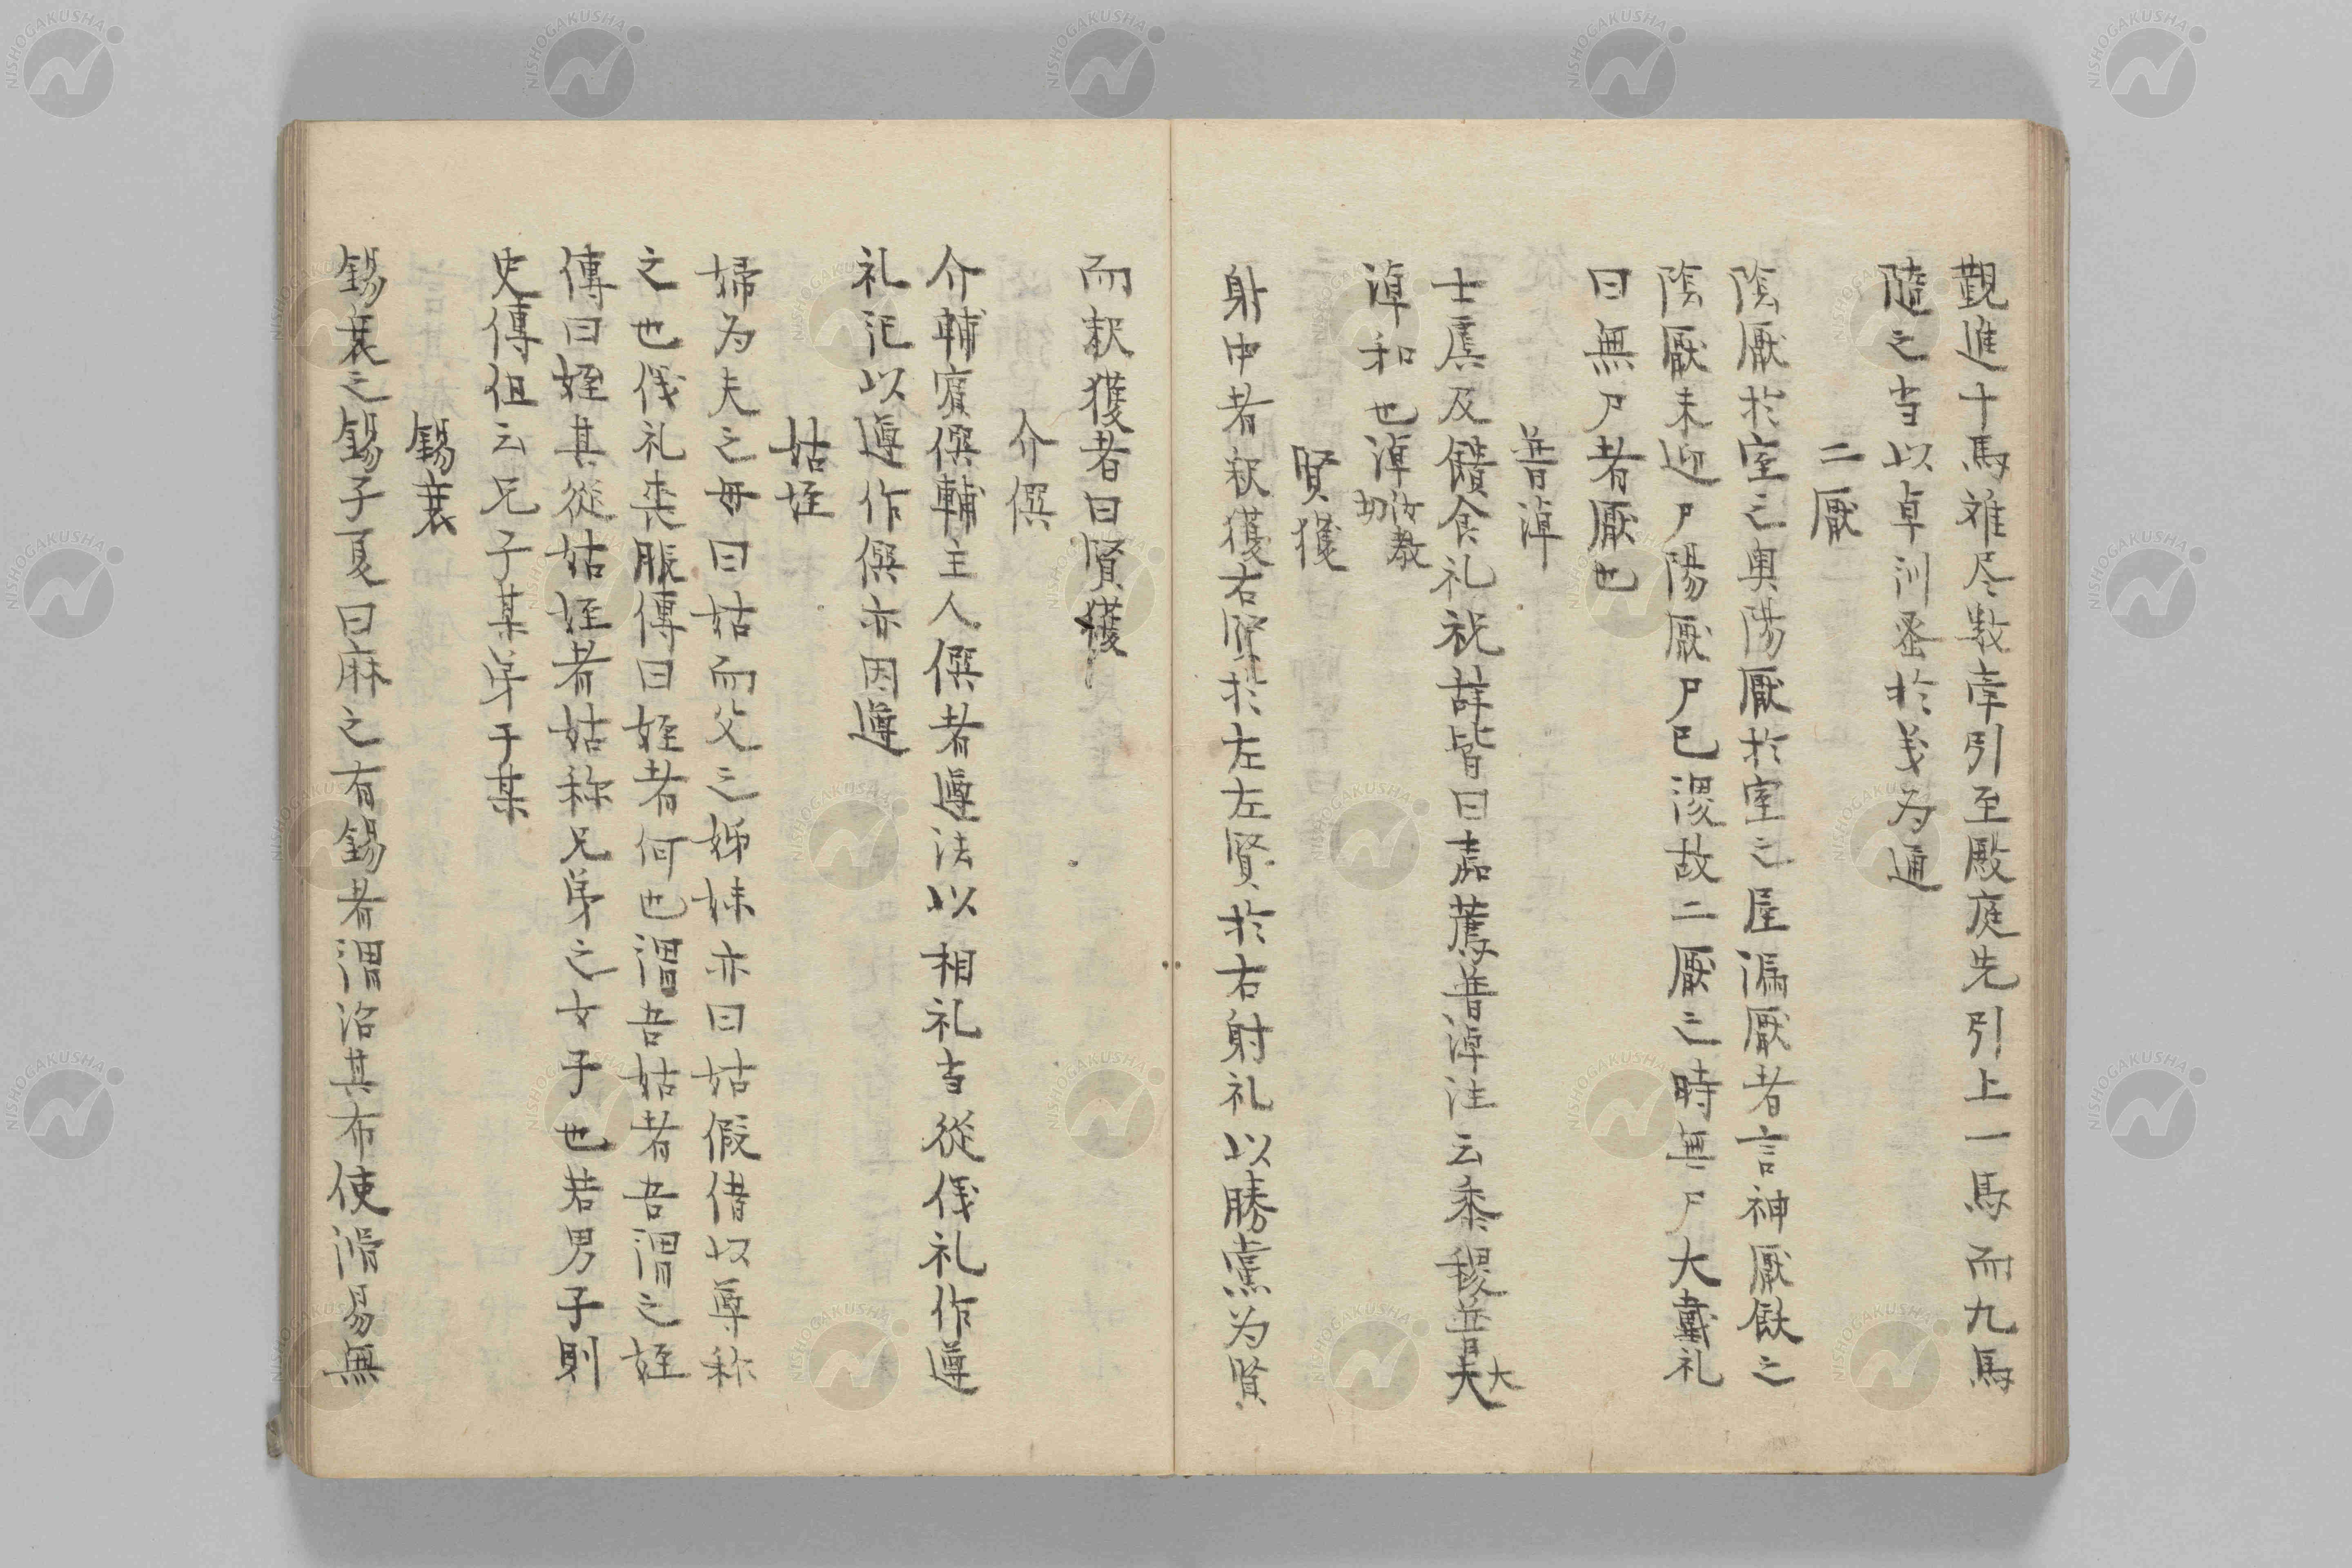 觀進十馬难尽數牽引至殿庭先引上一馬而九馬
隨之当以卓訓蚤於义为通
二厭
陰厭於室之奥陽厭於室之屋漏厭者言神厭飫之
陰厭未迎尸陽厭尸已謖故二厭之時無尸大戴礼
曰無尸者厭也
普淖
士虞及饋食礼祝辞皆曰嘉薦普淖注云黍稷普大夫
淖和也淖女教切
賢獲
射中者釈獲右賢於左左賢於右射礼以勝党为賢
而釈獲者曰賢獲
介僎
介輔賓僎輔主人僎者遵法以相礼古從仪礼作遵
礼记以遵作僎亦因遵
姑姪
婦为夫之母曰姑而父之姊妹亦曰姑假借以尊称
之也仪礼丧服傳曰姪者何也謂吾姑者吾謂之姪
傳曰姪其從姑姪者姑称兄弟之女子也若男子則
史傳但云兄子某弟子某
錫衰
錫衰之錫子夏曰麻之有錫者謂治其布使滑易無